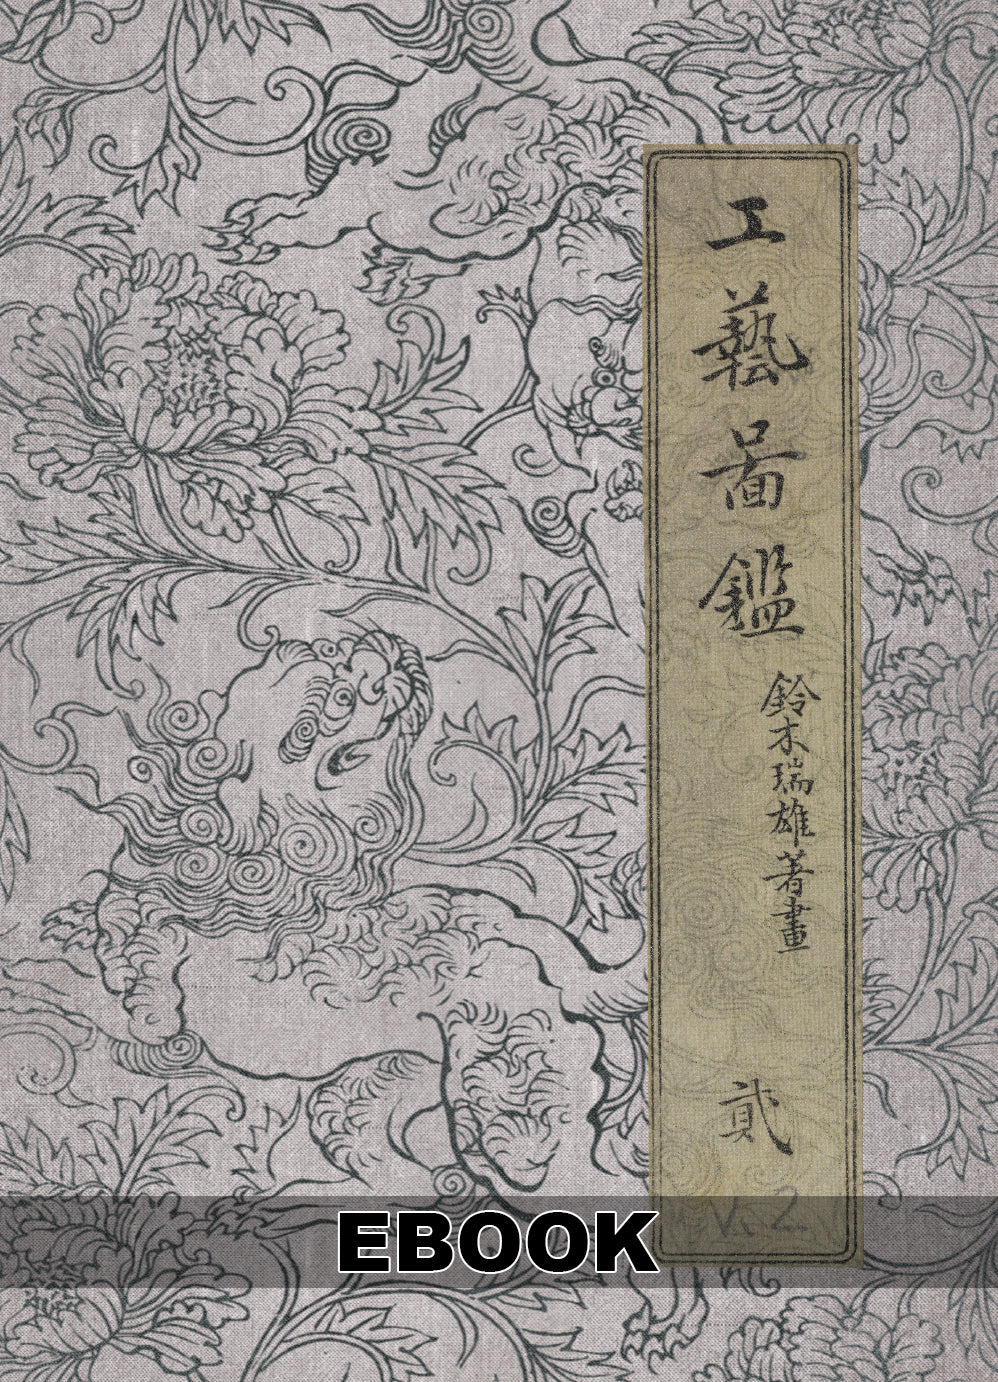 工藝啚鑑
鈴木瑞雄著畫
貳
V. 2
EBOOK